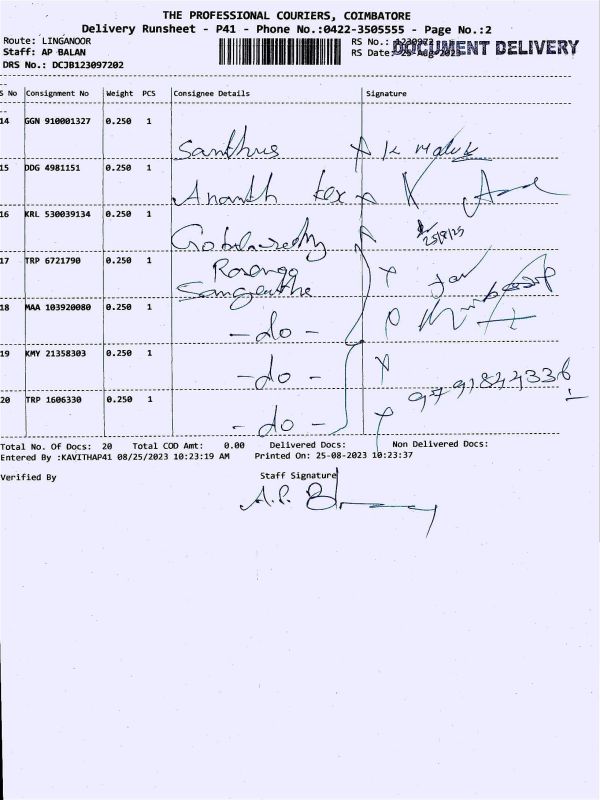 THE PROFESSIONAL COURIERS, COIMBATORE
Delivery Runsheet - P41 - Phone No.:0422-3505555 - Page No.:2
Route: LINGANOOR RS No.: 1230972
Staff: AP BALAN RS Date: 25-Aug-2023 DOCUMENT DELIVERY
DRS No.: DCJB123097202
S No Consignment No Weight PCS Consignee Details Signature
14 GGN 910001327 0.250 1 Santhus
15 DDG 4981151 0.250 1 Ananth
16 KRL 530039134 0.250 1 25/8/25
17 TRP 6721790 0.250 1
18 MAA 103920080 0.250 1 - do -
19 KMY 21358303 0.250 1 - do -
9791844336
20 TRP 1606330 0.250 1 - do -
Total No. Of Docs: 20 Total COD Amt: 0.00 Delivered Docs: Non Delivered Docs:
Entered By :KAVITHAP41 08/25/2023 10:23:19 AM Printed On: 25-08-2023 10:23:37
Verified By Staff Signature
A.P.